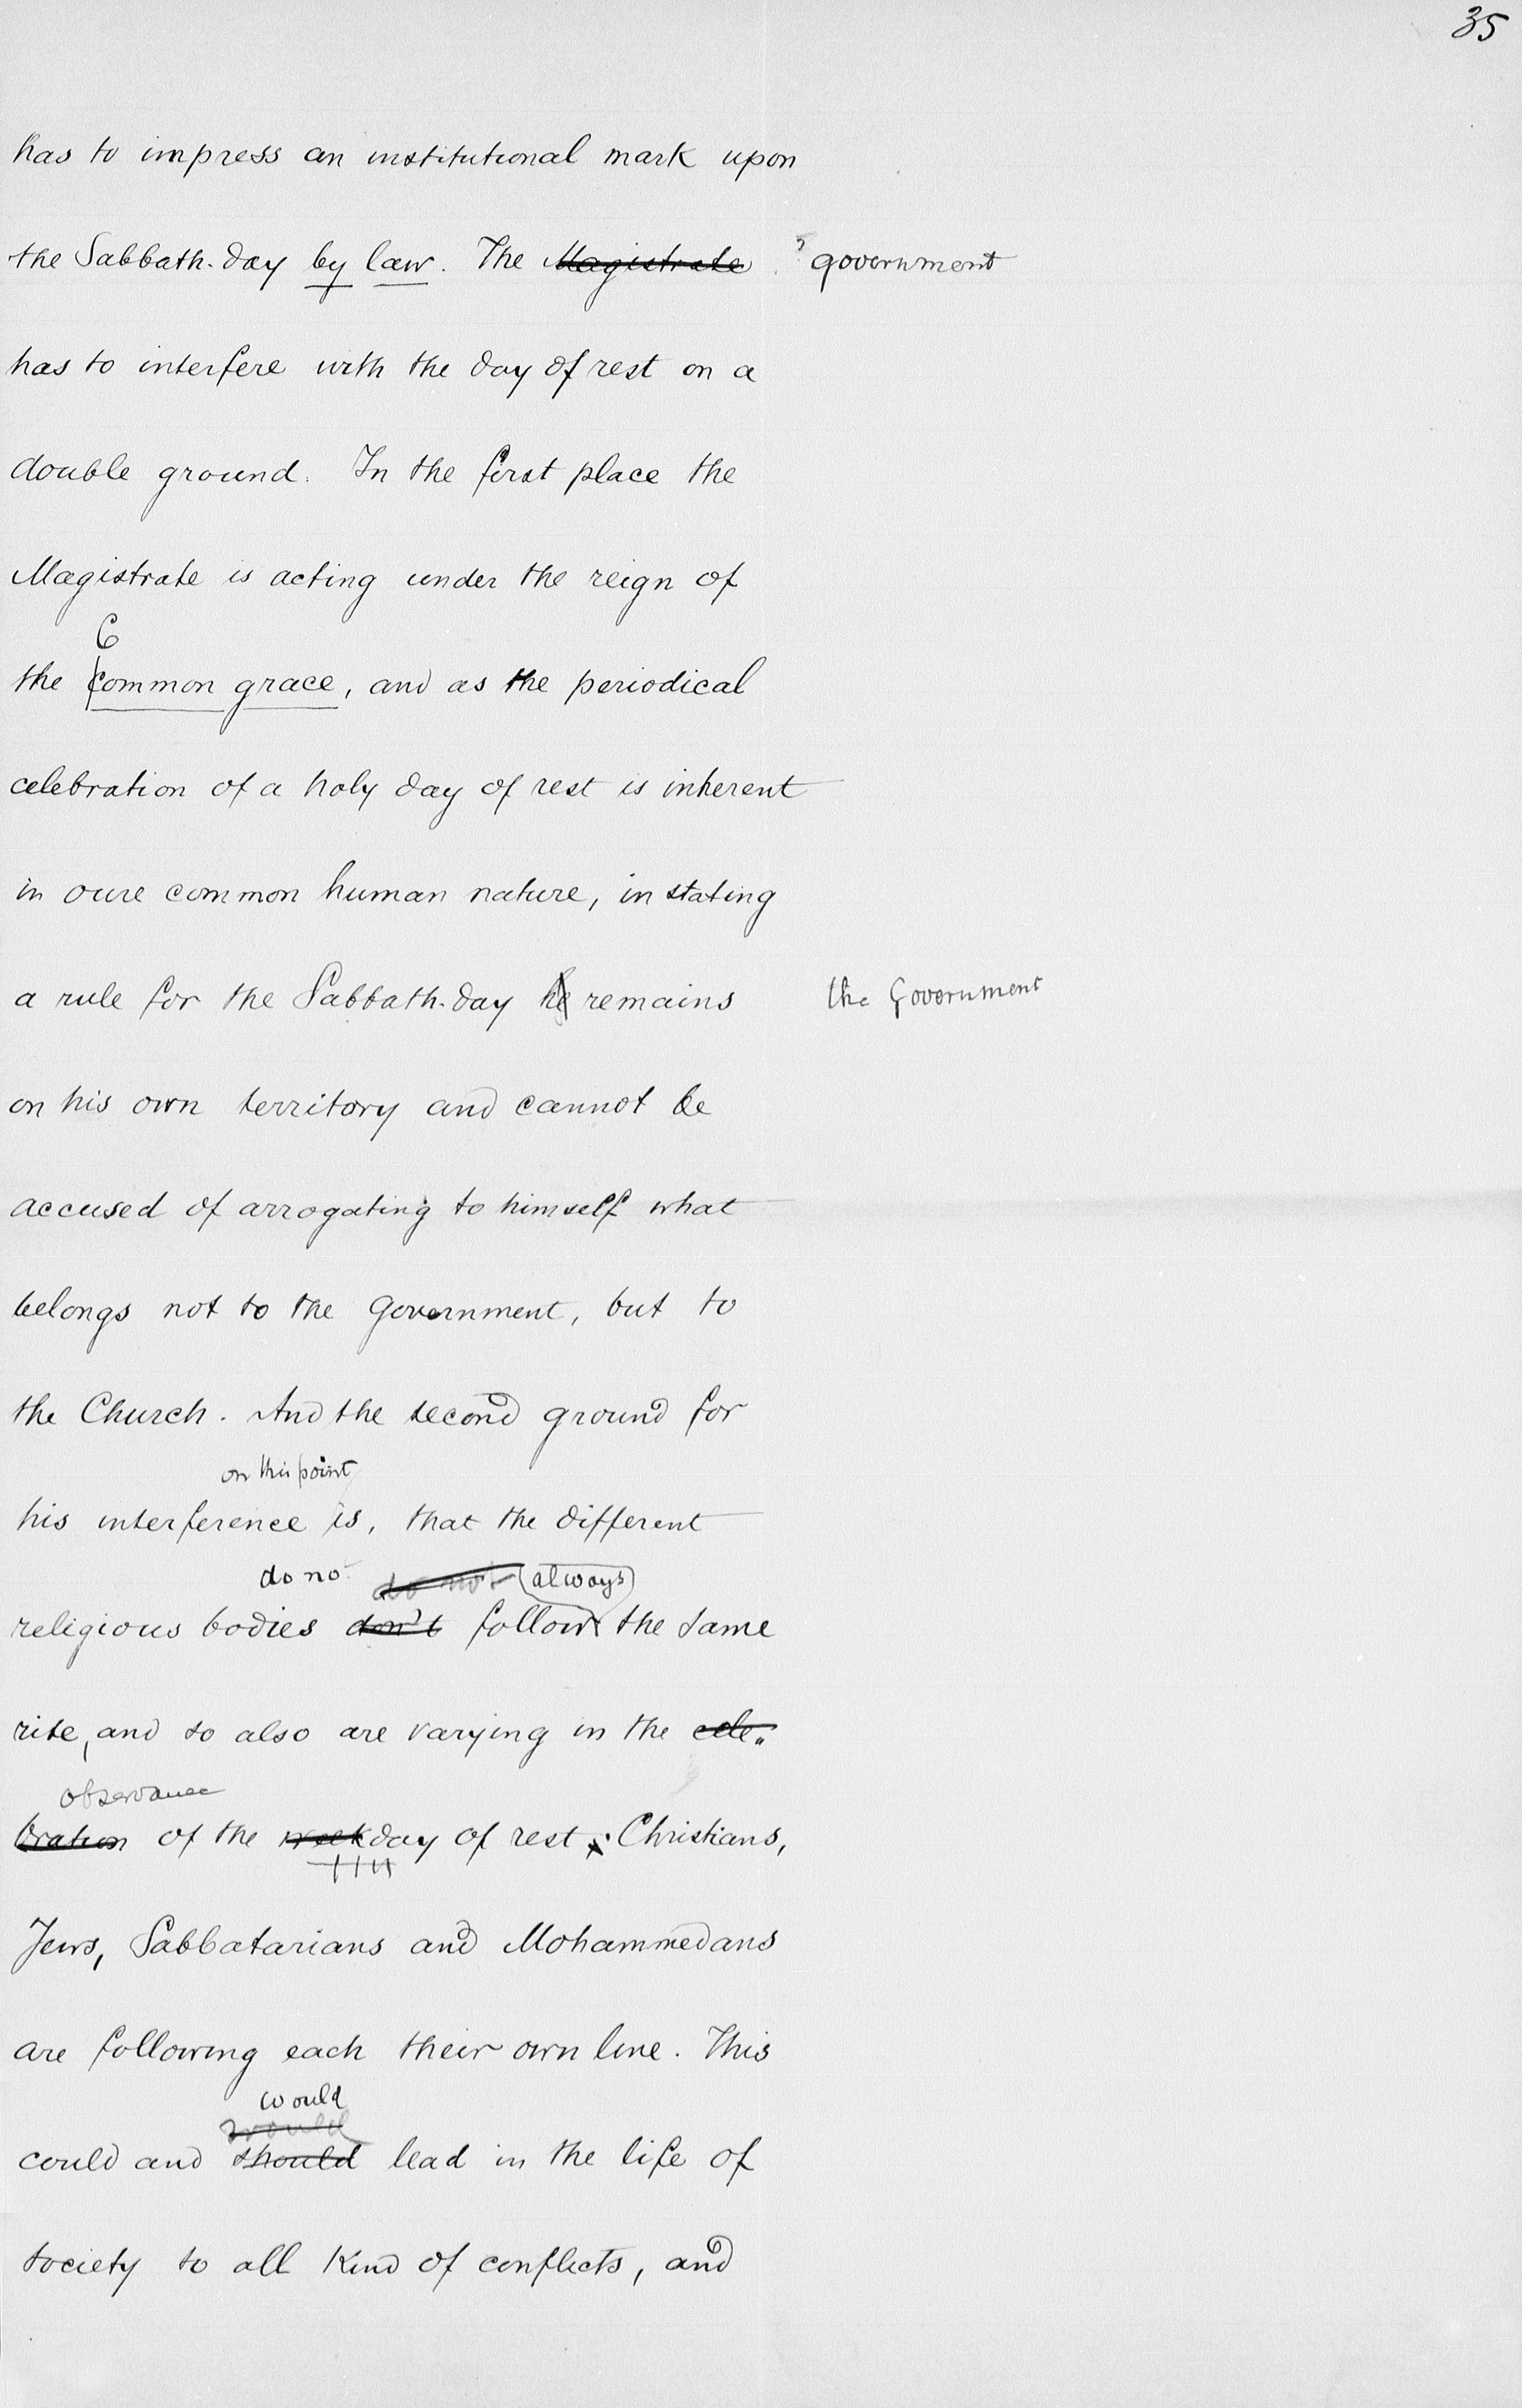 35
has to impress an institutional mark upon
the Sabbath-day by law. The Magistrate government
has to interfere with the day of rest on a
double ground. In the first place the
Magistrate is acting under the reign of
C
the common grace, and as the periodical
celebration of a holy day of rest is inherent
in oure common human nature, in stating
a rule for the Sabbath-day he remains the Government
on his own territory and cannot be
accused of arrogating to himself what
belongs not to the Government, but to
the Church. And the second ground for
on this point
his interference is, that the different
do no do not always
religious bodies don't follow the same
rite, and so also are varying in the cele-
observance
bration of the weekday of rest; Christians,
Jews, Sabbatarians and Mohammedans
are following each their own line. This
would
would
could and should lead in the life of
society to all kind of conflicts, and